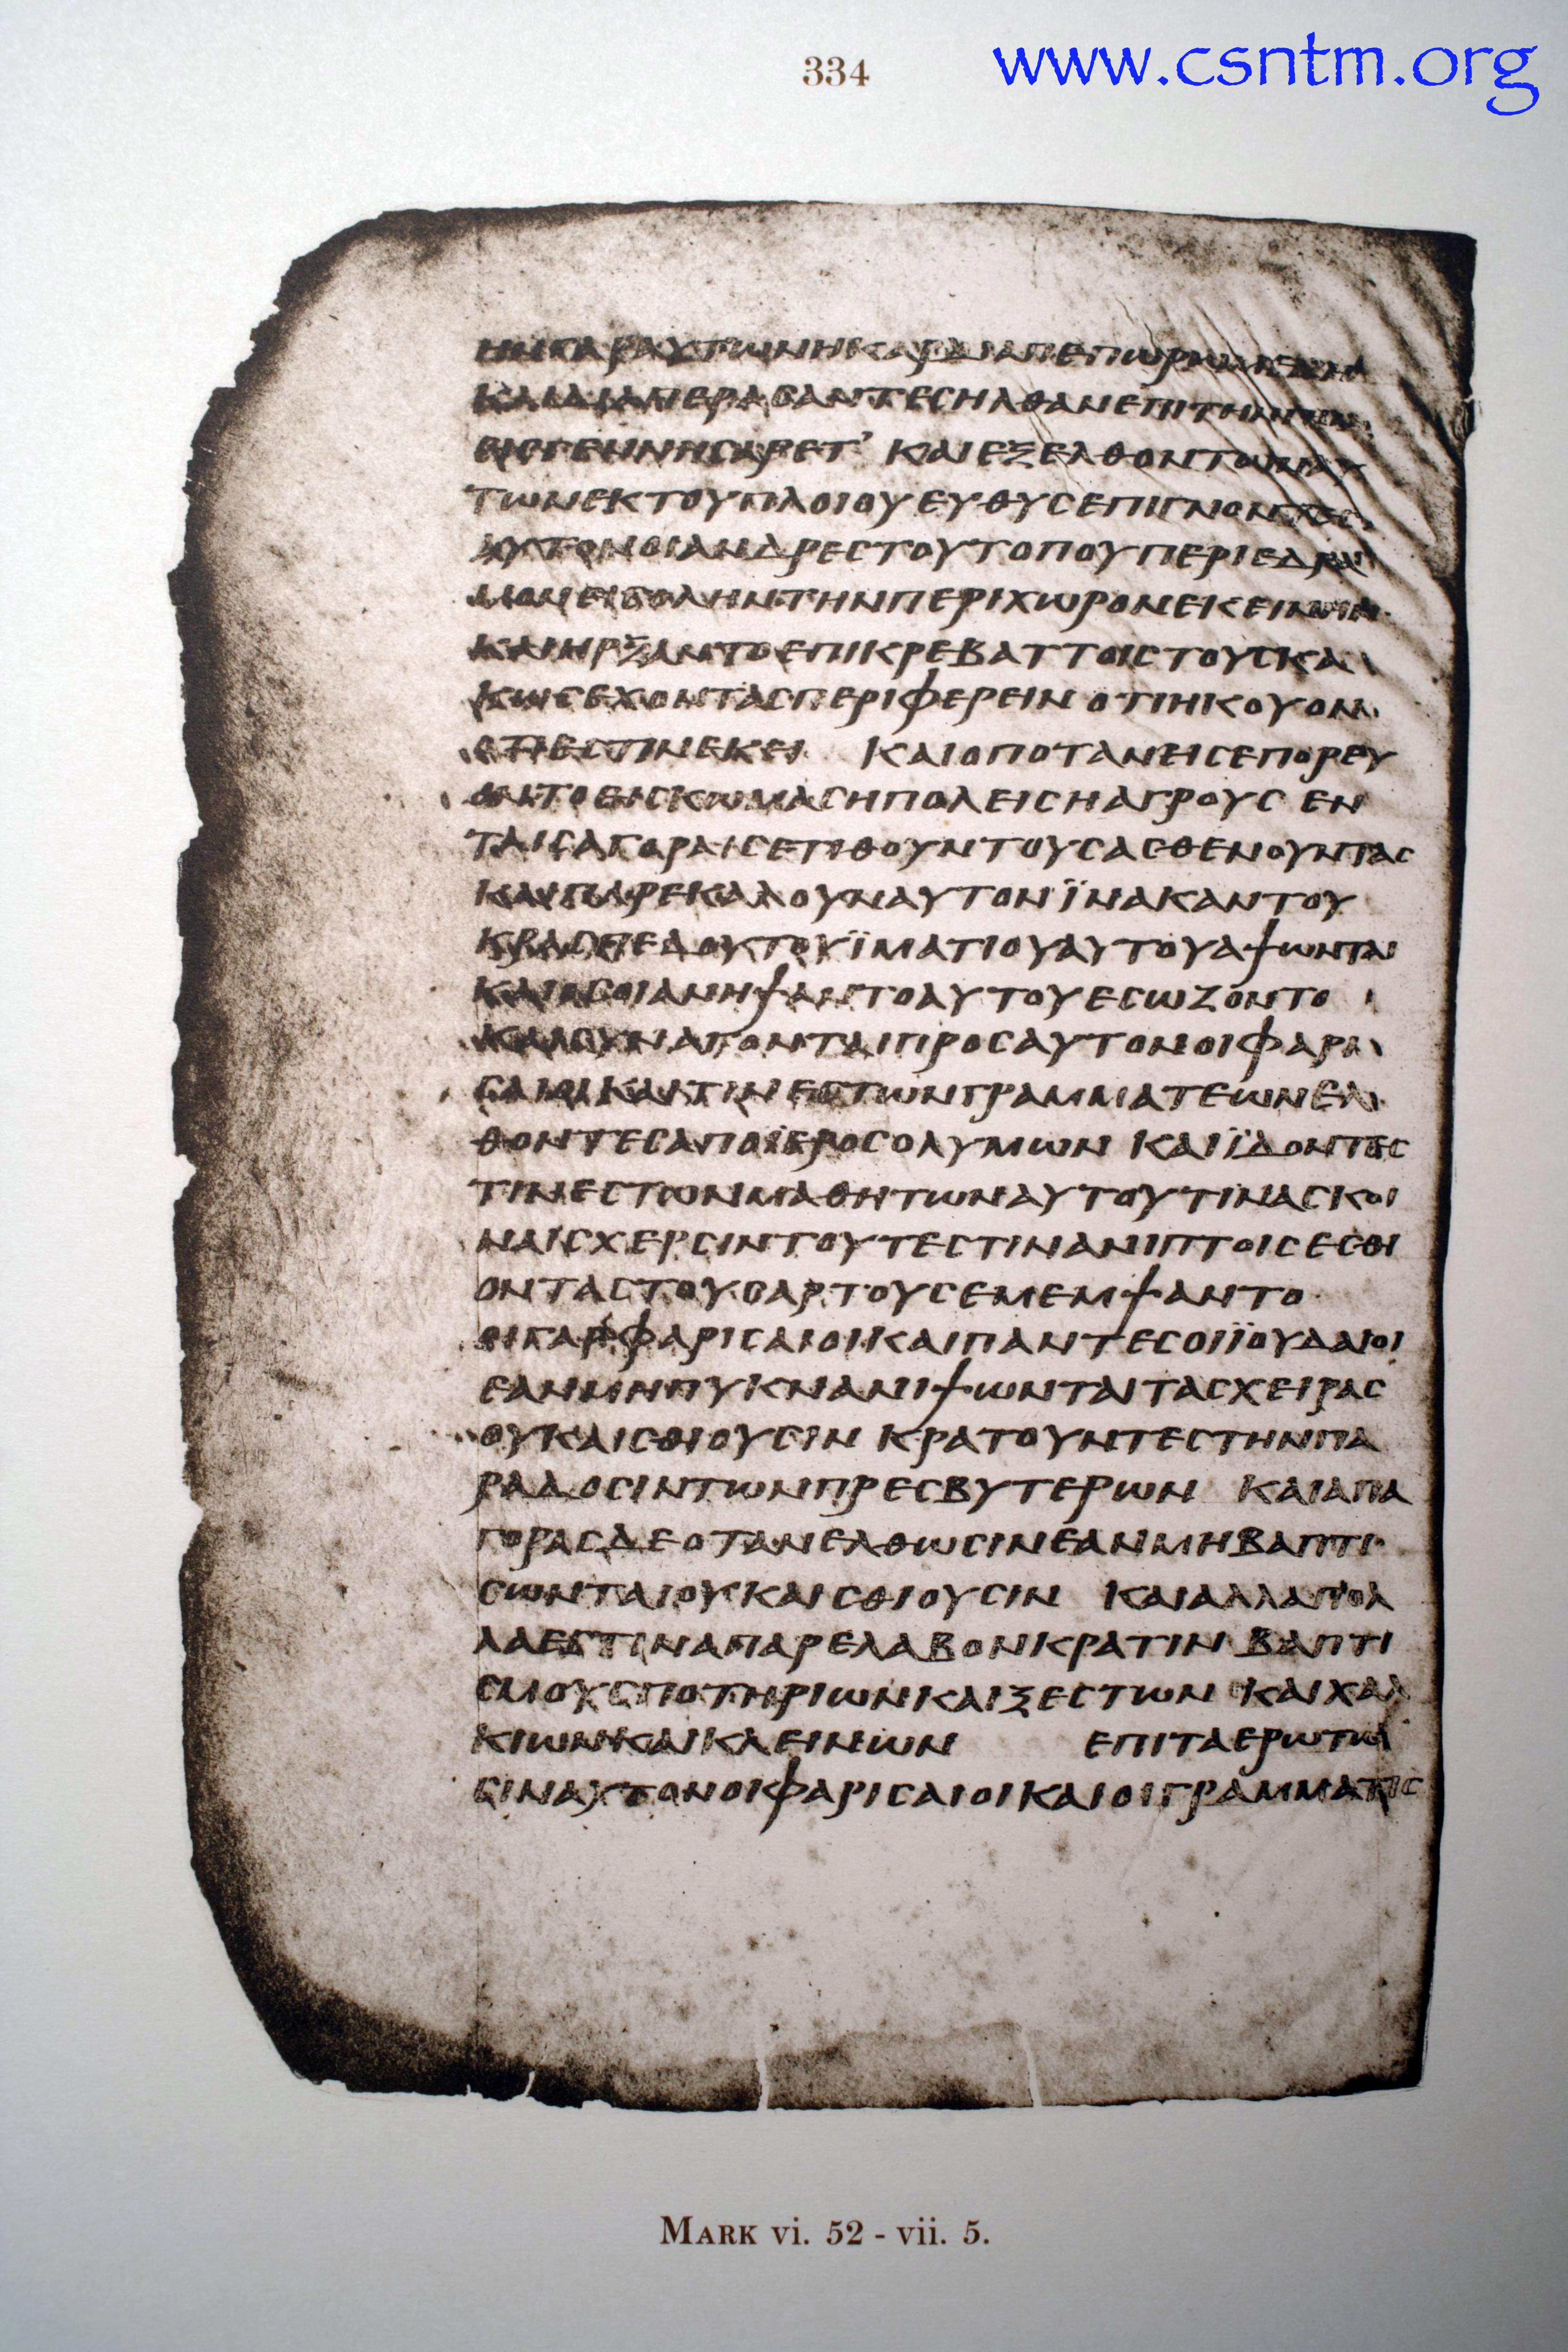 334
www.csntm.org
ΚΑΙΔΙΑΠΕΡΑСΑΝΤΕСΗΛΘΑΝΕΠΙΤΗΝ
ΓΕΝΝΗСΑΡΕΤ’ ΚΑΙΕΞΕΛΘΟΝΤΩΝΑΥ
ΤΩΝΕΚΤΟΥΠΛΟΙΟΥΕΥΘΥСΕΠΙΓΝΟΝΤΕС
ΑΥΤΟΝΟΙΑΝΔΡΕСΤΟΥΤΟΠΟΥΠΕΡΙΕΔΡΑ
ΜΟΝΕΙСΟΛΗΝΤΗΝΠΕΡΙΧΩΡΟΝΕΚΕΙΝΗΝ
ΚΑΙΗΡΞΑΝΤΟΕΠΙΚΡΕΒΑΤΤΟΙСΤΟΥСΚΑ
ΚΩСΕΧΟΝΤΑСΠΕΡΙΦΕΡΕΙΝ ΟΤΙΗΚΟΥΟΝ
ΟΤΙΕСΤΙΝΕΚΕΙ ΚΑΙΟΠΟΤΑΝΕΙСΕΠΟΡΕΥ
ΟΝΤΟΕΙСΚΩΜΑСΗΠΟΛΕΙСΗΑΓΡΟΥС ΕΝ
ΤΑΙСΑΓΟΡΑΙСΕΤΙΘΟΥΝΤΟΥСΑСΘΕΝΟΥΝΤΑС
ΚΑΙΠΑΡΕΚΑΛΟΥΝΑΥΤΟΝΪΝΑΚΑΝΤΟΥ
ΚΡΑСΠΕΔΟΥΤΟΥΪΜΑΤΙΟΥΑΥΤΟΥΑΨΩΝΤΑΙ
ΚΑΙΟСΟΙΑΝΗΨΑΝΤΟΑΥΤΟΥΕСΩΖΟΝΤΟ
ΚΑΙСΥΝΑΓΟΝΤΑΙΠΡΟСΑΥΤΟΝΟΙΦΑΡΙ
СΑΙΟΙΚΑΙΤΙΝΕСΤΩΝΓΡΑΜΜΑΤΕΩΝΕΛ
ΘΟΝΤΕСΑΠΟΪΕΡΟСΟΛΥΜΩΝ ΚΑΙΪΔΟΝΤΕС
ΤΙΝΕСΤΩΝΜΑΘΗΤΩΝΑΥΤΟΥΤΙΝΑСΚΟΙ
ΝΑΙСΧΕΡСΙΝΤΟΥΤΕСΤΙΝΑΝΙΠΤΟΙСΕСΘΙ
ΟΝΤΑСΤΟΥСΑΡΤΟΥСΕΜΕΜΨΑΝΤΟ
ΟΙΓΑΡΦΑΡΙСΑΙΟΙΚΑΙΠΑΝΤΕСΟΙΪΟΥΔΑΙΟΙ
ΕΑΝΜΗΠΥΚΝΑΝΙΨΩΝΤΑΙΤΑСΧΕΙΡΑС
ΟΥΚΑΙСΘΙΟΥСΙΝ ΚΡΑΤΟΥΝΤΕСΤΗΝΠΑ
ΡΑΔΟСΙΝΤΩΝΠΡΕСΒΥΤΕΡΩΝ ΚΑΙΑΠΑ
ΓΟΡΑСΔΕΟΤΑΝΕΛΘΩСΙΝΕΑΝΜΗΒΑΠΤΙ
СΩΝΤΑΙΟΥΚΑΙСΘΙΟΥСΙΝ ΚΑΙΑΛΛΑΠΟΛ
ΛΑΕСΤΙΝΑΠΑΡΕΛΑΒΟΝΚΡΑΤΙΝ ΒΑΠΤΙ
СΜΟΥСΠΟΤΗΡΙΩΝΚΑΙΞΕСΤΩΝ ΚΑΙΧΑΛ
ΚΙΩΝΚΑΙΚΛΕΙΝΩΝ ΕΠΙΤΑΕΡΩΤΩ
СΙΝΑΥΤΟΝΟΙΦΑΡΙСΑΙΟΙΚΑΙΟΙΓΡΑΜΜΑΤΙС
MARK vi. 52 - vii. 5.